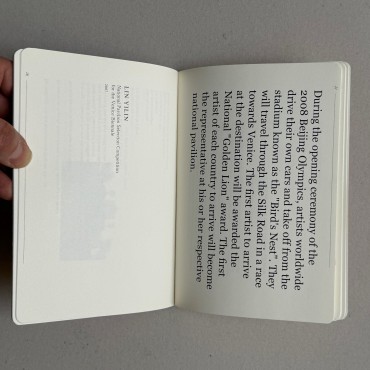 LIN YILIN
National Pavilion Selection Competition
for the Venice Biennale
During the opening ceremony of the
2008 Beijing Olympics, artists worldwide
drive their own cars and take off from the
stadium known as the "Bird's Nest". They
will travel through the Silk Road in a race
towards Venice. The first artist to arrive
at the destination will be awarded the
National "Golden Lion" award. The first
artist of each country to arrive will become
the representative at his or her respective
national pavilion.